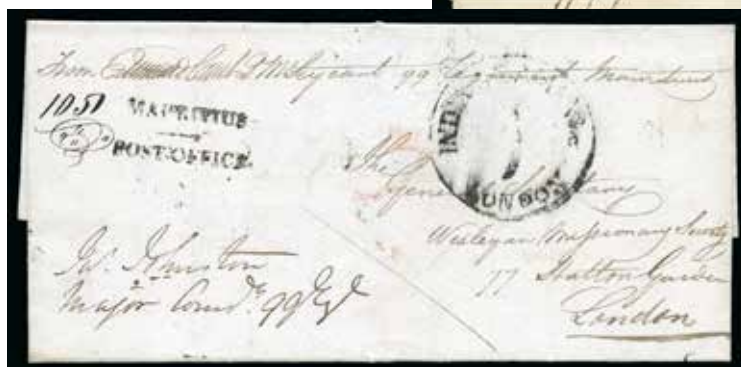 From Edward Paul Sergeant 99 Regiment Mauritius
1051
MAURITIUS
POST OFFICE
IND
LONDON
The
General Secretary
Wesleyan Missionary Society
77 Hatton Garden
London
W. Johnston
Major Comdg. 99 Regt